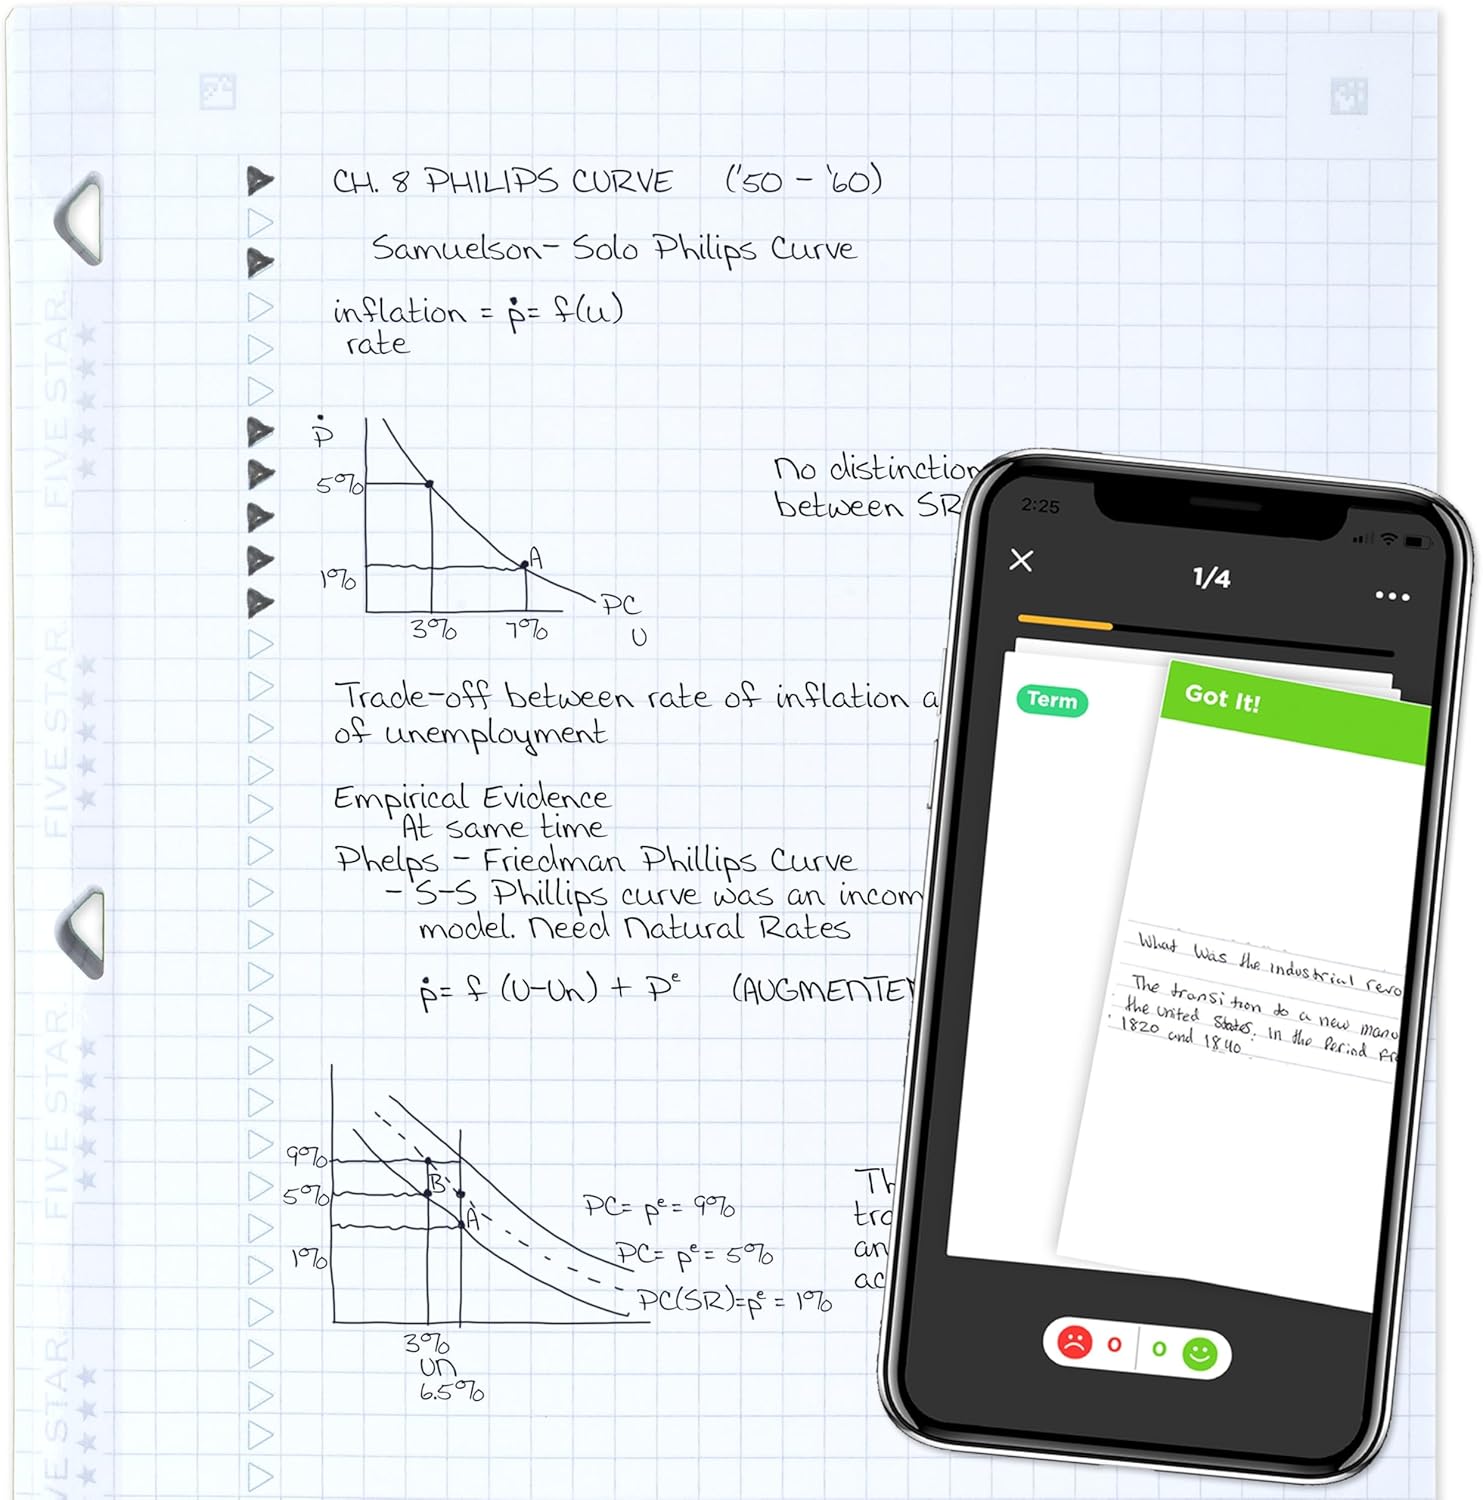 CH. 8 PHILIPS CURVE ('50 - '60)
Samuelson- Solo Philips Curve
inflation = ṗ= f(u)
rate
ṗ
5%
1%
A
PC
3% 7% U
No distinction
between SR
Trade-off between rate of inflation a
of unemployment
Empirical Evidence
At same time
Phelps - Friedman Phillips Curve
- S-S Phillips curve was an incom
model. Need Natural Rates
ṗ= f (U-Un) + Pᵉ (AUGMENTE
9%
5%
1%
B
A
PC= pᵉ= 9%
PC= pᵉ= 5%
PC(SR)=pᵉ = 1%
3%
un
6.5%
Th
tra
an
ac
FIVE STAR
FIVE STAR
FIVE STAR
FIVE STAR
2:25
1/4
Term
Got It!
What was the industrial revo
The transition to a new manu
the United States. in the Period fr
1820 and 1840
0 0